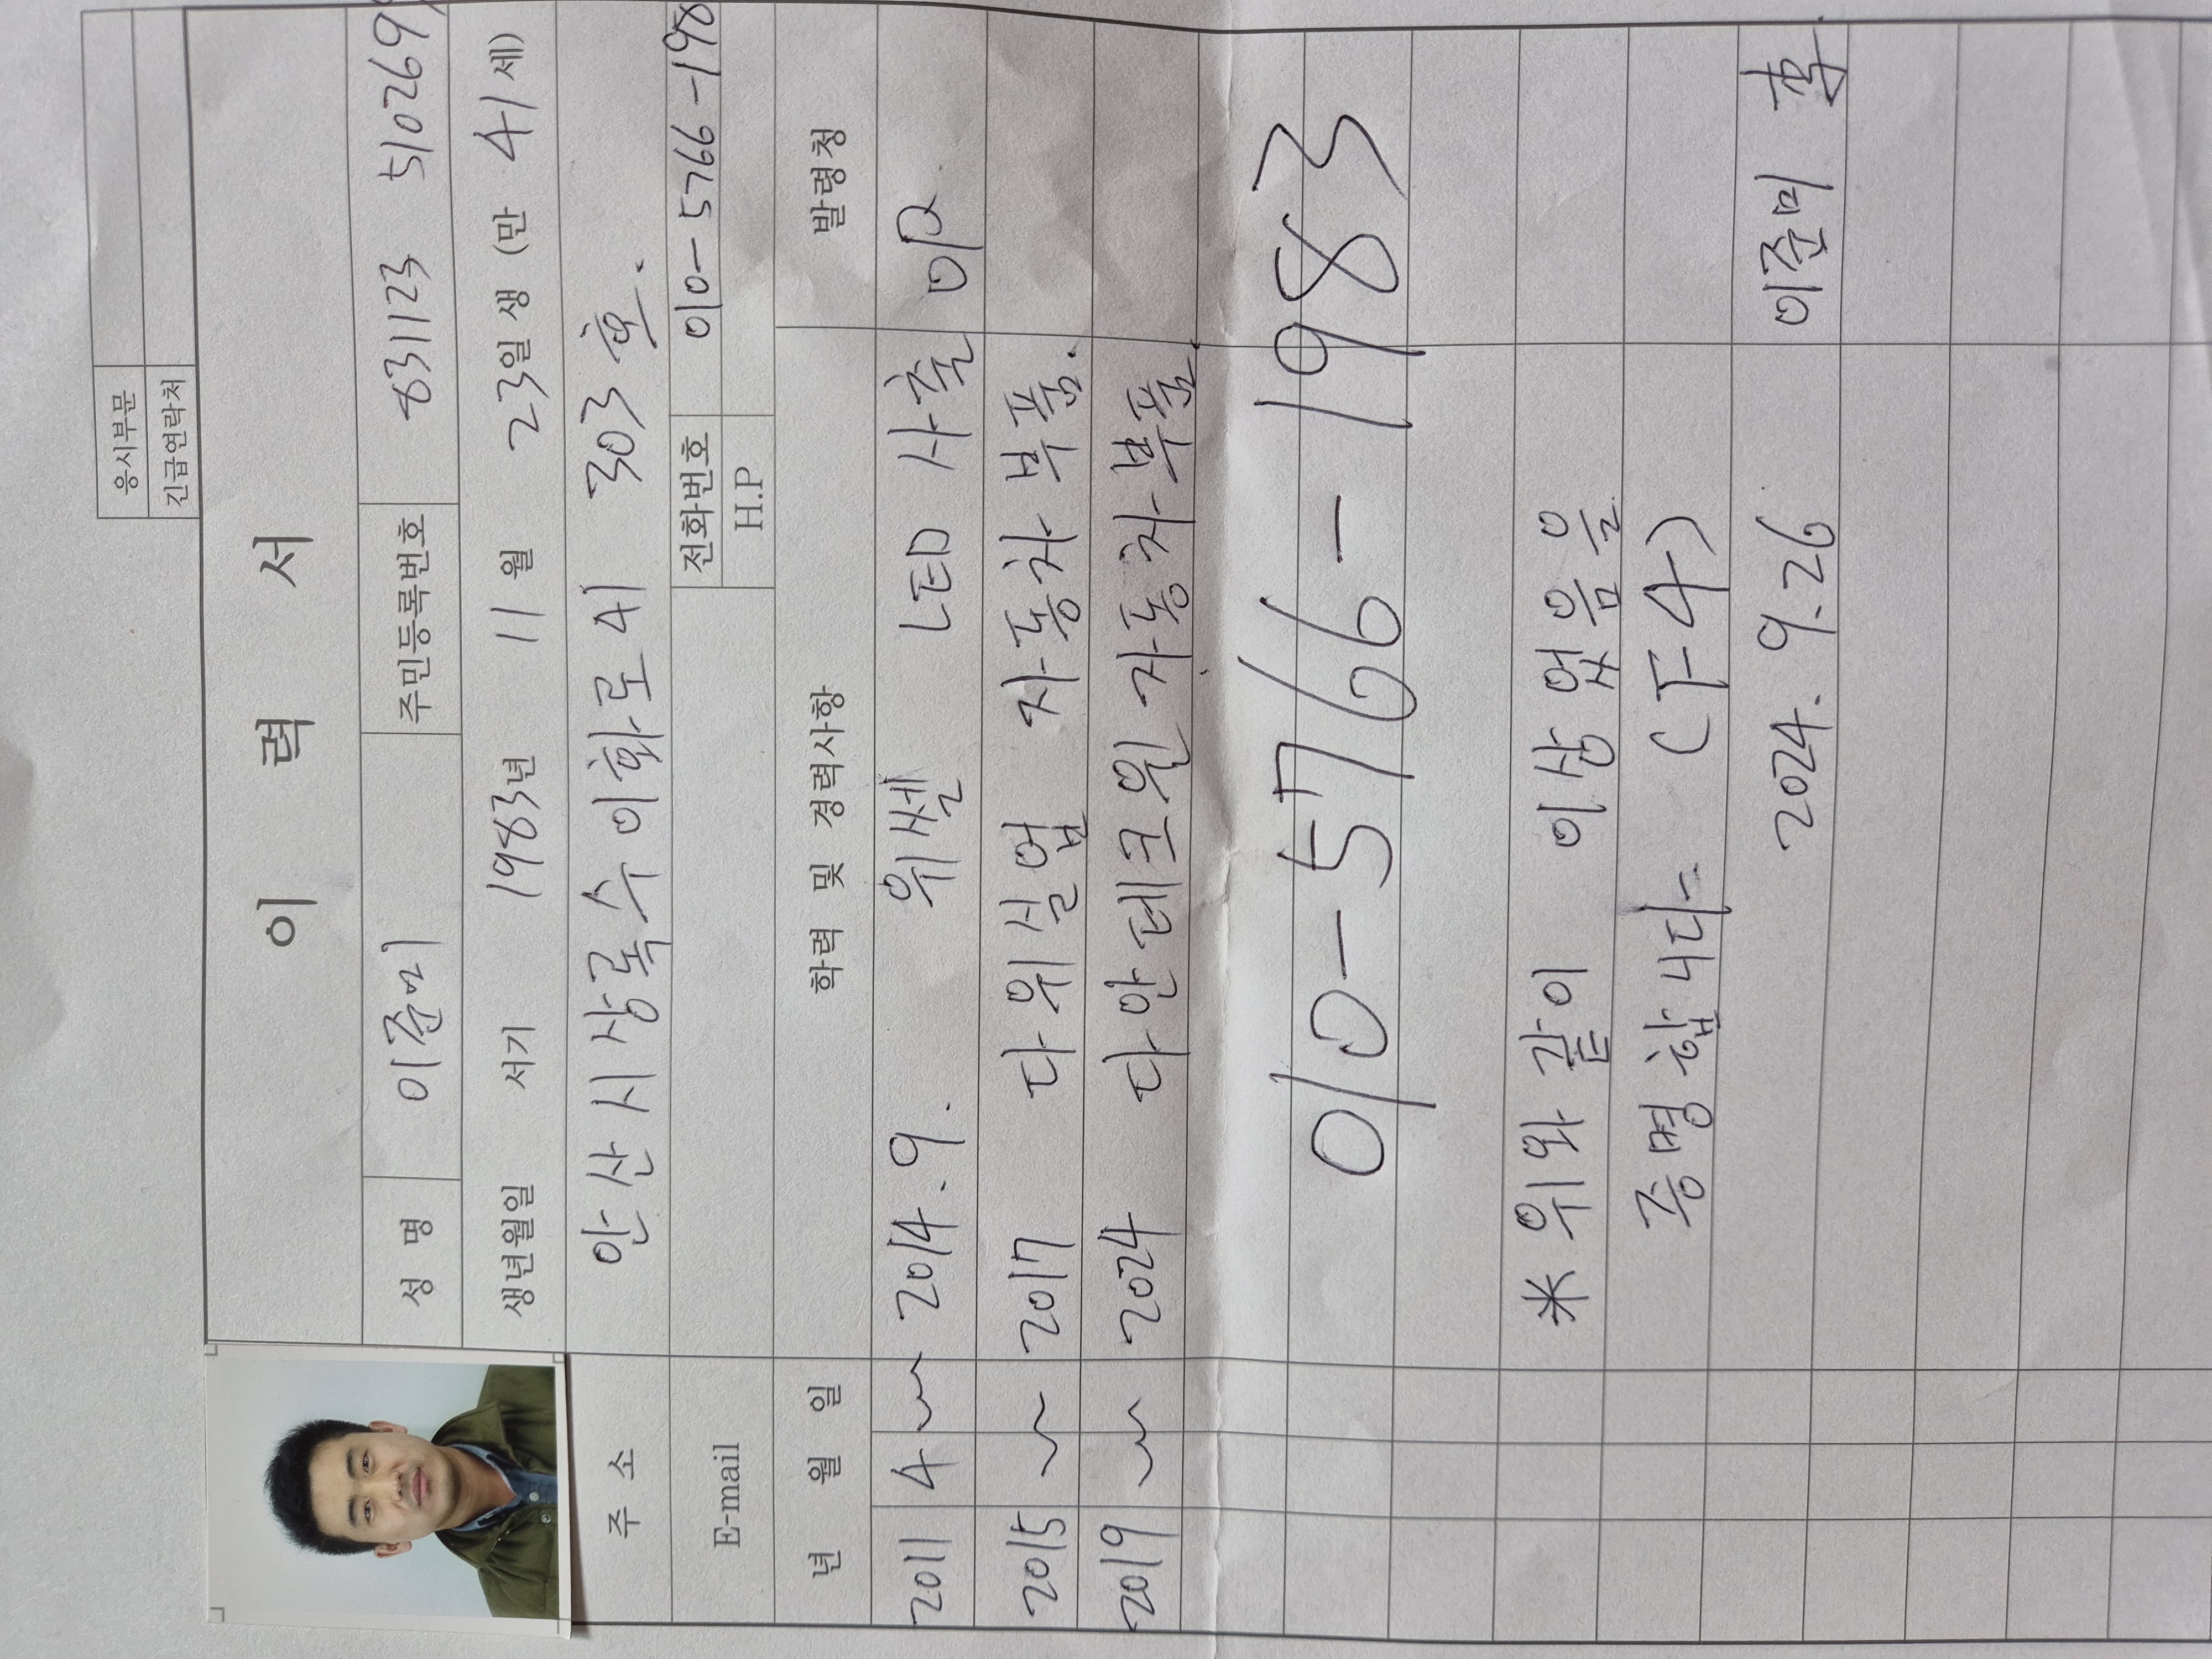 응시부문
긴급연락처
이 력 서
성 명 이준미 주민등록번호 831123 510269
생년월일 서기 1983년 11월 23일생 (만 41세)
주 소 안산시상록수이화로41 303호.
E-mail 전화번호 010-5766-198
H.P
년 월 일 학력 및 경력사항 발령청
2011 4 ~ 2014.9. 위쎌 LED 사출
2015 ~ 2017 다위실업 자동차부품.
2019 ~ 2024 다안테크윈 자동차부품.
010-5766-1983
* 위와 같이 이상없음을
증명합니다 (F4)
2024. 9. 26 이준미 李